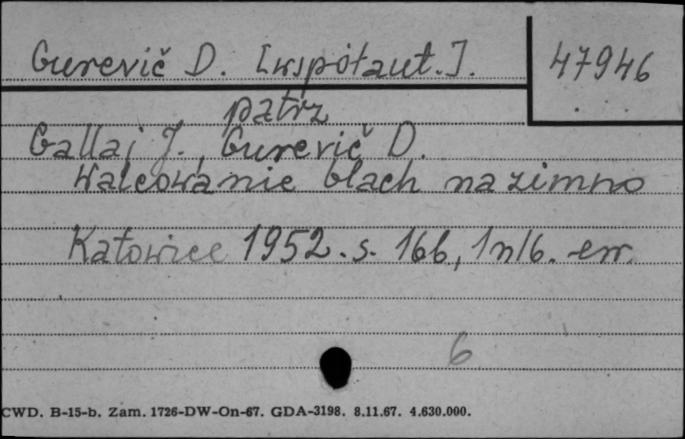 Gurevič D. [współaut.].
47946
patrz
Gallaj J., Gurevič D.
Walcowanie blach na zimno
Katowice 1952. s. 166, 1nlb. err.
6
CWD. B-15-b. Zam. 1726-DW-On-67. GDA-3198. 8.11.67. 4.630.000.